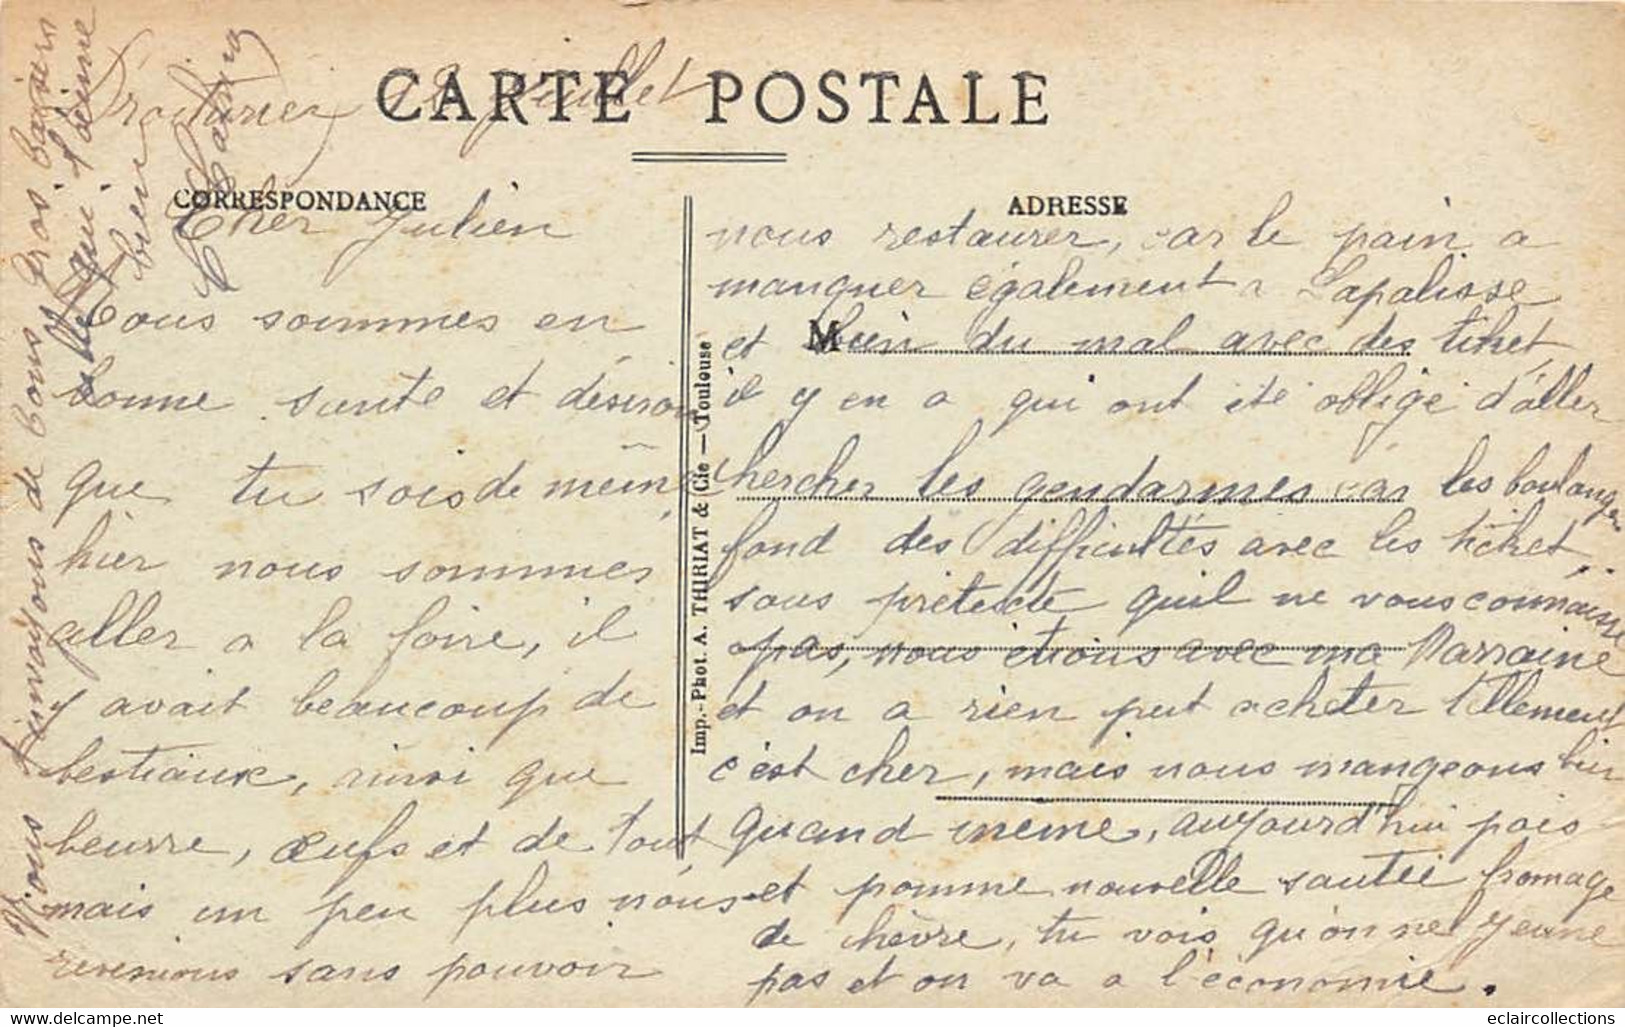 Droiturier, 13 juillet
CARTE POSTALE
CORRESPONDANCE
ADRESSE
Cher Julien
Nous sommes en
bonne santé et désirons
que tu sois de même
hier nous sommes
aller a la foire, il
y avait beaucoup de
bestiaux, ainsi que
beurre, œufs et de tout
mais un peu plus nous
revenions sans pouvoir
nous restaurer, car le pain a
manquer également a Lapalisse
M
et bien du mal avec des tiket,
il y en a qui ont été obligé d'aller
chercher les gendarmes car les boulanger
fond des difficultés avec les ticket,
sous prétexte qu'il ne vous connaisse
pas, nous étions avec ma Marraine
et on a rien put acheter tellement
c'est cher, mais nous mangeons bien
quand même, aujourd'hui pois
et pomme nouvelle sautée fromage
de chèvre, tu vois qu'on ne jeune
pas et on va a l'économie.
Imp.-Phot. A. THIRIAT & Cie — Toulouse
Nous t'envoyons de bons gros baisers
celle qui t'aime
bien
eclaircollections